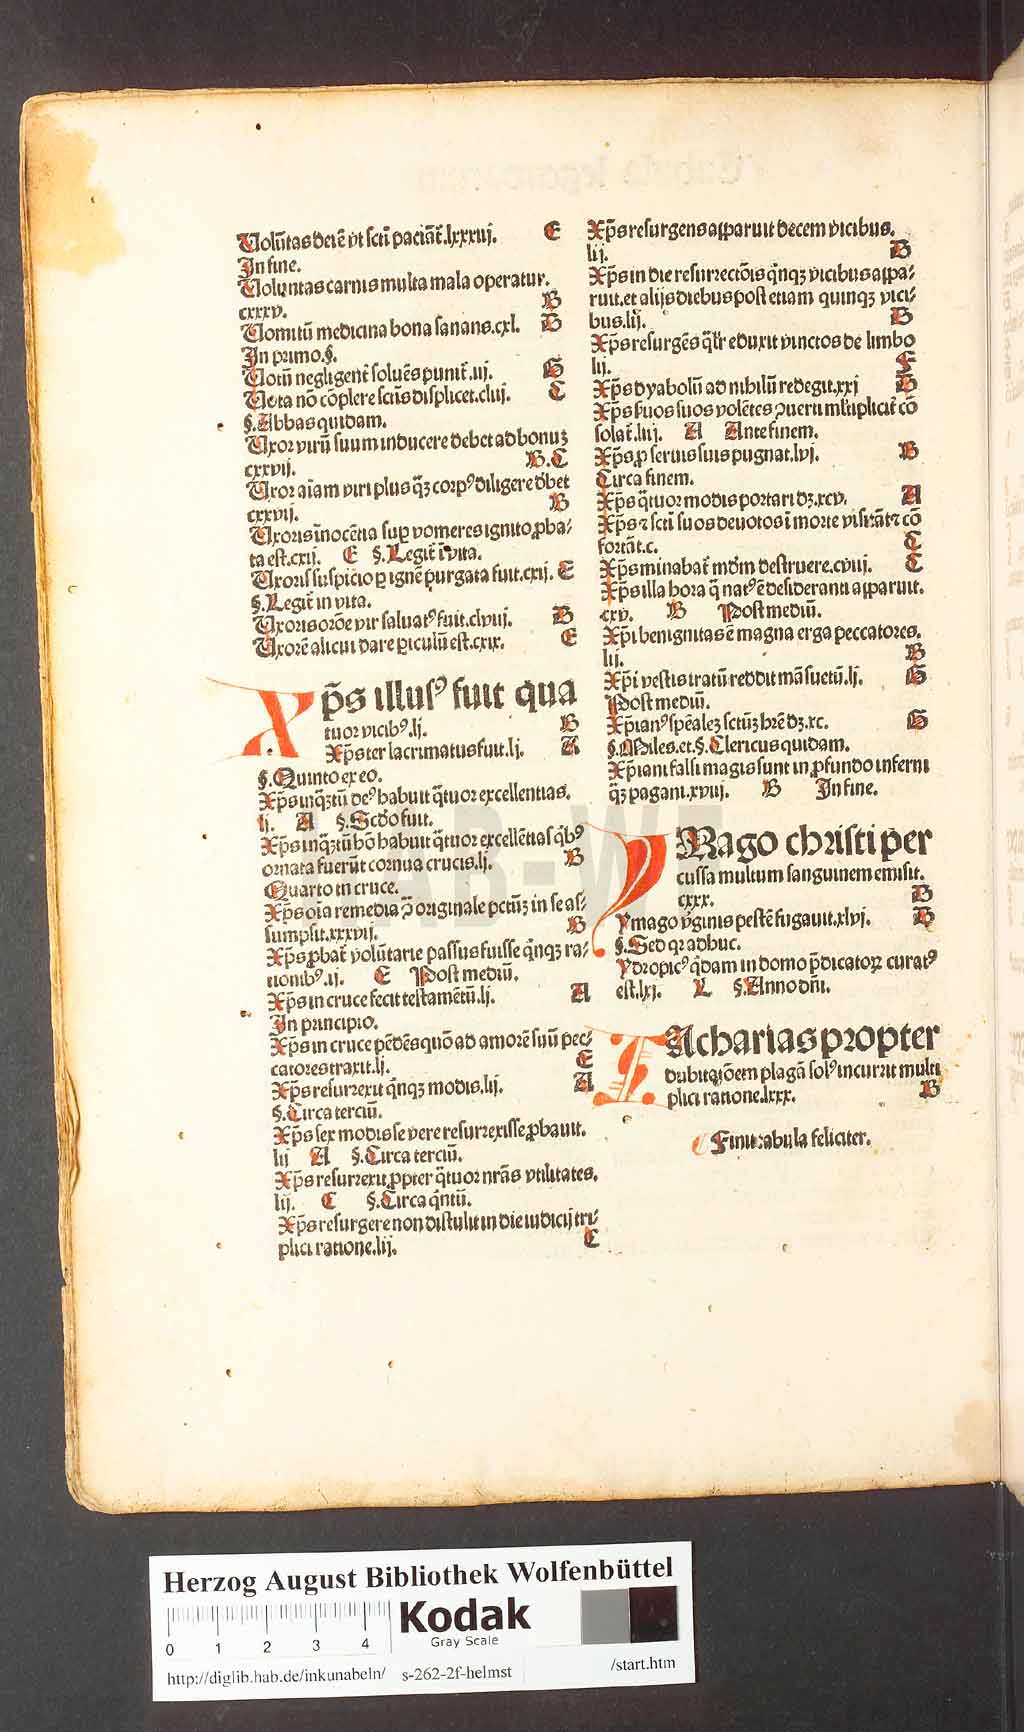 Volūtas dei ē vt scti paciāt̄.lxxxvj. E
In fine.
Voluntas carnis multa mala operatur.
cxxxv. B
Uomitū medicina bona sanans.cxl. B
In primo.§.
Uotū negligent̄ soluēs punit̄.iij. G
Uota nō cōplere sctis displicet.cluj. C
§.Abbas quidam.
Uxor virū suum inducere debet ad bonuꝫ
cxxvij. B.C
Uxor aīam viri plus q̄ꝫ corpꝰ diligere dꝫbet
cxxvij. B
Uxoris īnocētia sup vomeres ignito ꝓba-
ta est.cxij. E §.Legit̄ ī vita.
Uxoris suspicio ꝑ ignē purgata fuit.cxij. E
§.Legit̄ in vita.
Uxoris orōe vir saluatꝰ fuit.clvuj. B
Uxorē alicui dare ꝑiculū est.cxix. E
Xp̄s illusꝰ fuit qua
tuor vicibꝰ.lj. B
Xp̄s ter lacrimatus fuit.lj. A
§.Quinto ex eo.
Xp̄s inq̄ꝫtū deꝰ habuit q̄tuor excellentias.
lj. A §.Scdo fuit.
Xp̄s inq̄ꝫtū hō habuit q̄tuor excellētias q̄bꝰ
ornata fuerūt cornua crucis.lj. B
Quarto in cruce.
Xp̄s oīa remedia ꝯ originale pctūꝫ in se as-
sumpsit.xxxvij. B
Xp̄s ꝓbat̄ volūtarie passus fuisse q̄nqꝫ ra-
tionibꝰ.lj. E Post mediū.
Xp̄s in cruce fecit testamētū.lj. A
In principio.
Xp̄s in cruce pēdēs quō ad amorē suū pec-
catores traxit.lj. E
Xp̄s resurrexit q̄nqꝫ modis.lij. A
§.Circa terciū.
Xp̄s sex modis se vere resurrexisse ꝓbauit.
lij A §.Circa terciū.
Xp̄s resurrexit ꝓpter q̄tuor nr̄as vtilitates.
lij. C §.Circa q̄ntū.
Xp̄s resurgere non distulit in die iudicij tri-
plici ratione.lij. C
Xp̄s resurgens apparuit decem vicibus.
lij. B
Xp̄s in die resurrectōis q̄nqꝫ vicibus appa-
ruit.et alijs diebus post etiam quinqꝫ vici-
bus.lij. B
Xp̄s resurgēs q̄lr eduxit vinctos de limbo
lij. F
Xp̄s dyabolū ad nihilū redegit.xxj B
Xp̄s suos suos volētes ꝯuerti mltiplicit̄ cō
solat̄.luj. A Ante finem.
Xp̄s ꝓ seruis suis pugnat.lvj. B
Circa finem.
Xp̄s q̄tuor modis portari dꝫ.xcv. A
Xp̄s ⁊ scti suos deuotos ī morte visitāt ⁊ cō
fortāt.c. C
Xp̄s minabat̄ mdm destruere.cvuj. C
Xp̄s illa hora q̄ natꝰ ē desideranti apparuit.
cxv. B Post mediū.
Xp̄i benignitas ē magna erga peccatores.
lij. B
Xp̄i vestis iratū reddit māsuetū.lj. G
Post mediū.
Xp̄ianꝰ spēalez sctūꝫ hr̄e dꝫ.xc. G
§.Miles.et.§.Clericus quidam.
Xp̄iani falsi magis sunt in ꝓfundo inferni
q̄ꝫ pagani.xvuj. B In fine.
YMago christi per
cussa multum sanguinem emisit.
cxxx. B
Ymago v̄ginis pestē fugauit.xlvj. B
§.Sed qr adhuc.
Ydropicꝰ q̄dam in domo p̄dicatoꝝ curatꝰ
est.lxj. L §.Anno dn̄i.
ZAcharias propter
dubitatiōem plagā solꝰ incurrit multi
plici ratione.lxxx. B
¶ Finit tabula feliciter.
Herzog August Bibliothek Wolfenbüttel
Kodak
Gray Scale
0 1 2 3 4
http://diglib.hab.de/inkunabeln/ s-262-2f-helmst /start.htm
HAB-WF